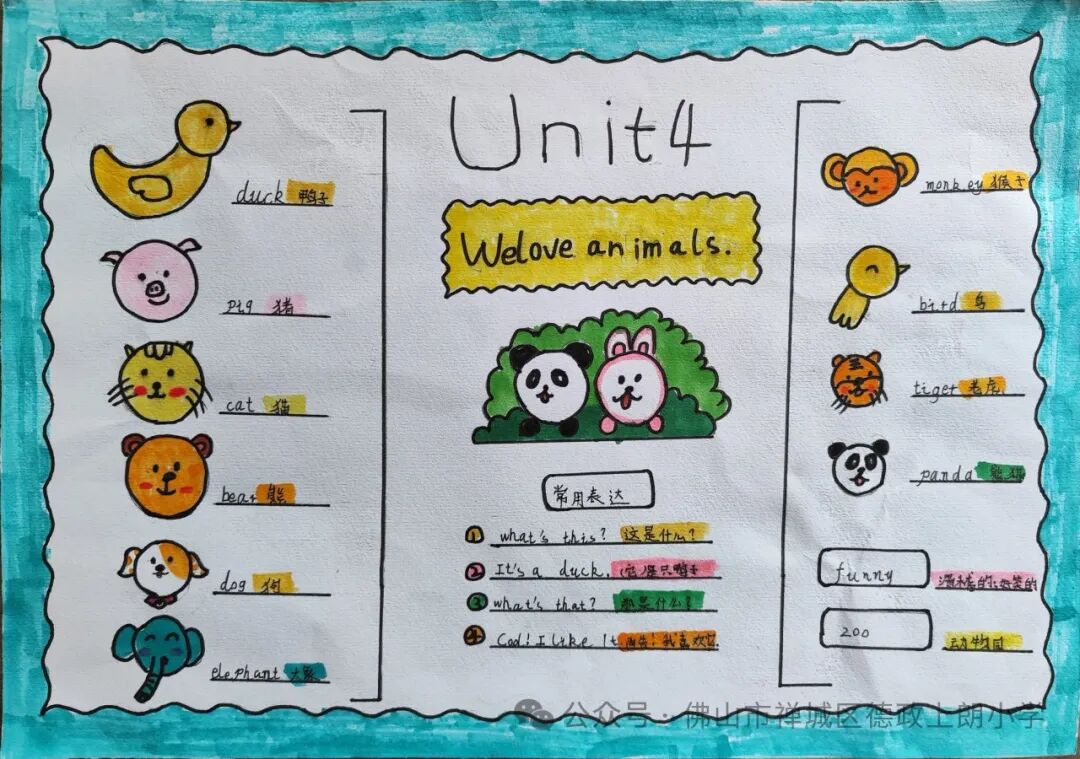 Unit4
Welove animals.
duck 鸭子
pig 猪
cat 猫
bear 熊
dog 狗
elephant 大象
常用表达
① what's this? 这是什么?
② It's a duck. 它是只鸭子
③ what's that? 那是什么?
④ Cool! I like It. 我喜欢它
monkey 猴子
bird 鸟
tiger 老虎
panda 熊猫
funny 滑稽的;好笑的
zoo 动物园
公众号·佛山市禅城区德政上朗小学